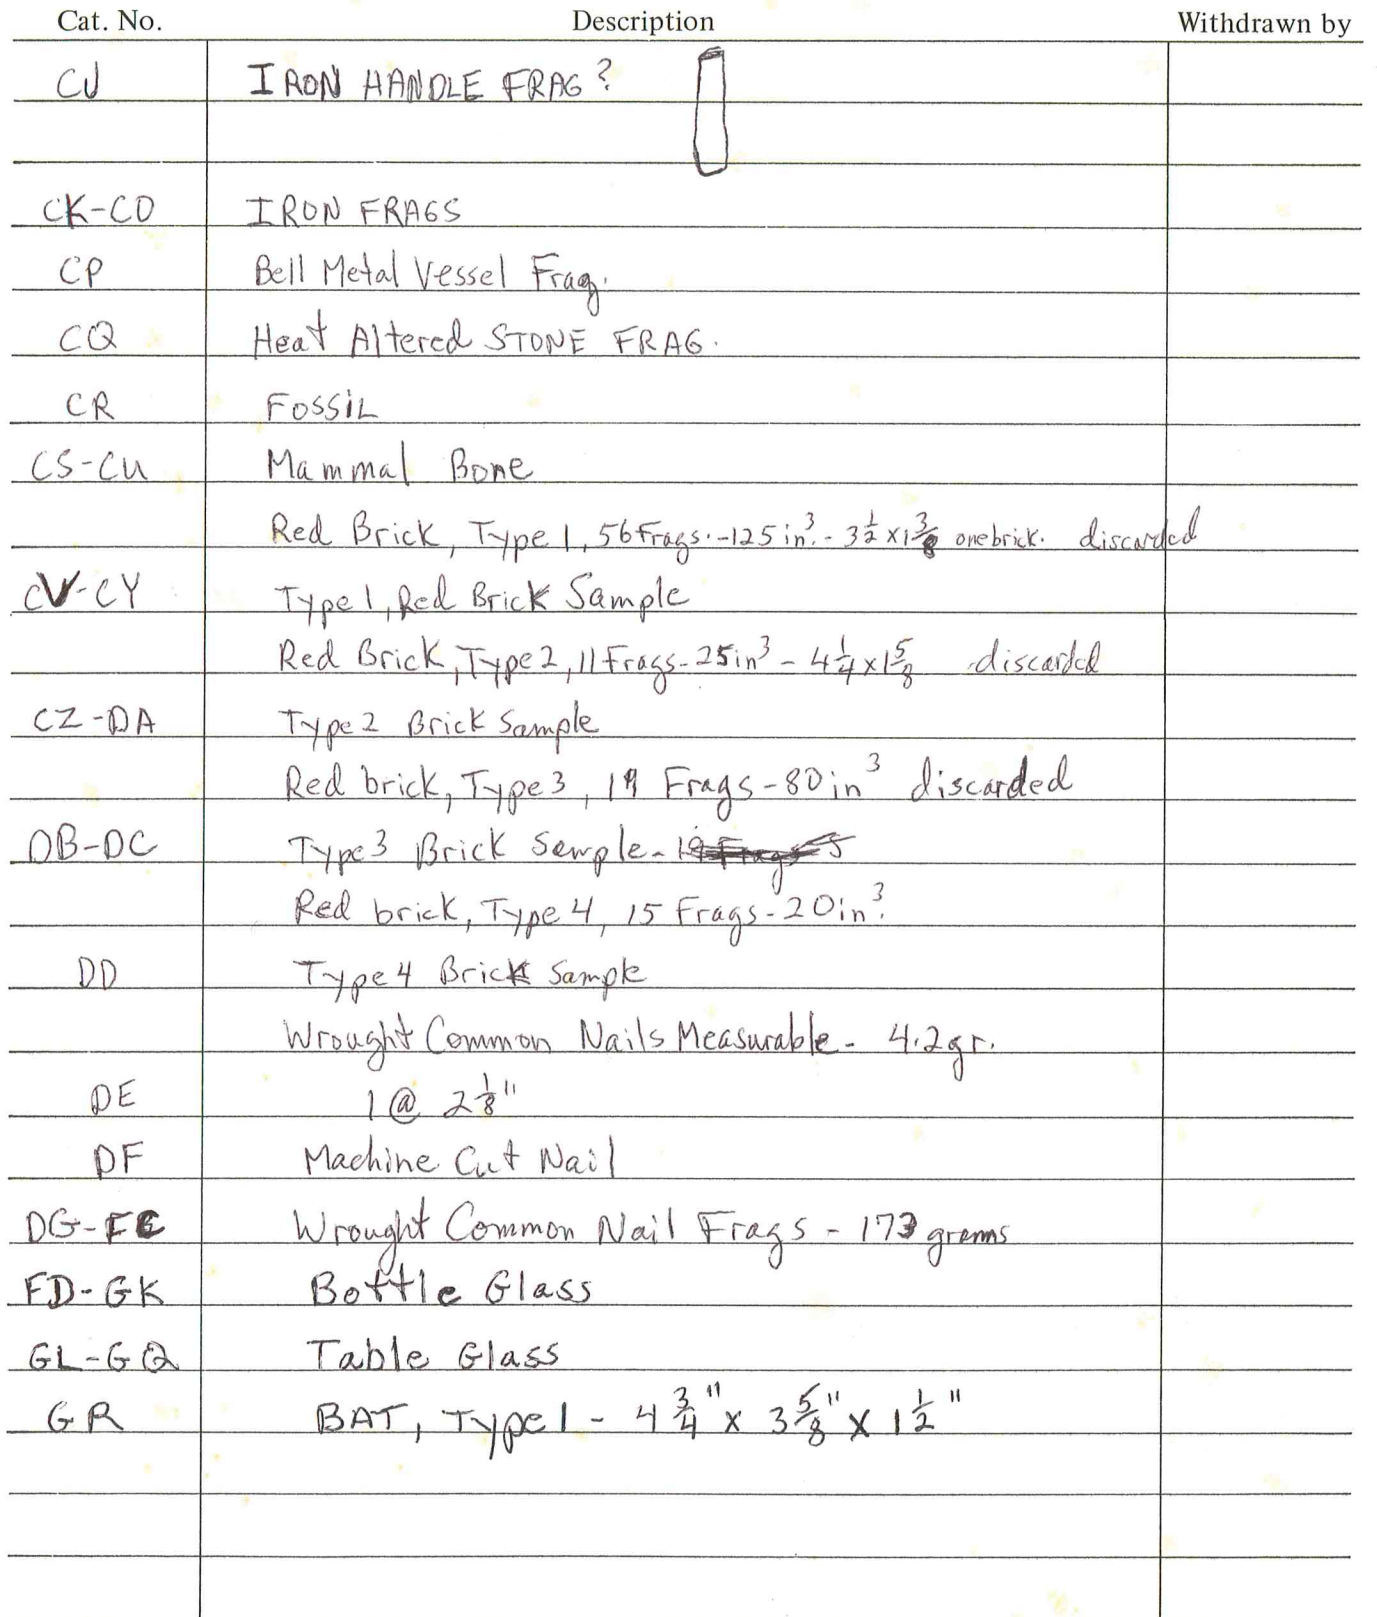 Cat. No. Description Withdrawn by
CJ IRON HANDLE FRAG?
CK-CO IRON FRAGS
CP Bell Metal Vessel Frag.
CQ Heat Altered STONE FRAG.
CR FOSSIL
CS-CU Mammal Bone
Red Brick, Type 1, 56 Frags.-125 in.³- 3½ x 1⅜ one brick. discarded
CV-CY Type 1, Red Brick Sample
Red Brick, Type 2, 11 Frags-25in³ - 4¼ x 1⅝ discarded
CZ-DA Type 2 Brick Sample
Red brick, Type 3, 19 Frags-80in³ discarded
DB-DC Type 3 Brick Sample-
Red brick, Type 4, 15 Frags-20in³.
DD Type 4 Brick Sample
Wrought Common Nails Measurable- 4.2gr.
DE 1 @ 2⅛"
DF Machine Cut Nail
DG-FC Wrought Common Nail Frags - 173 grams
FD-GK Bottle Glass
GL-GQ Table Glass
GR BAT, Type 1 - 4¾" x 3⅝" x 1½"